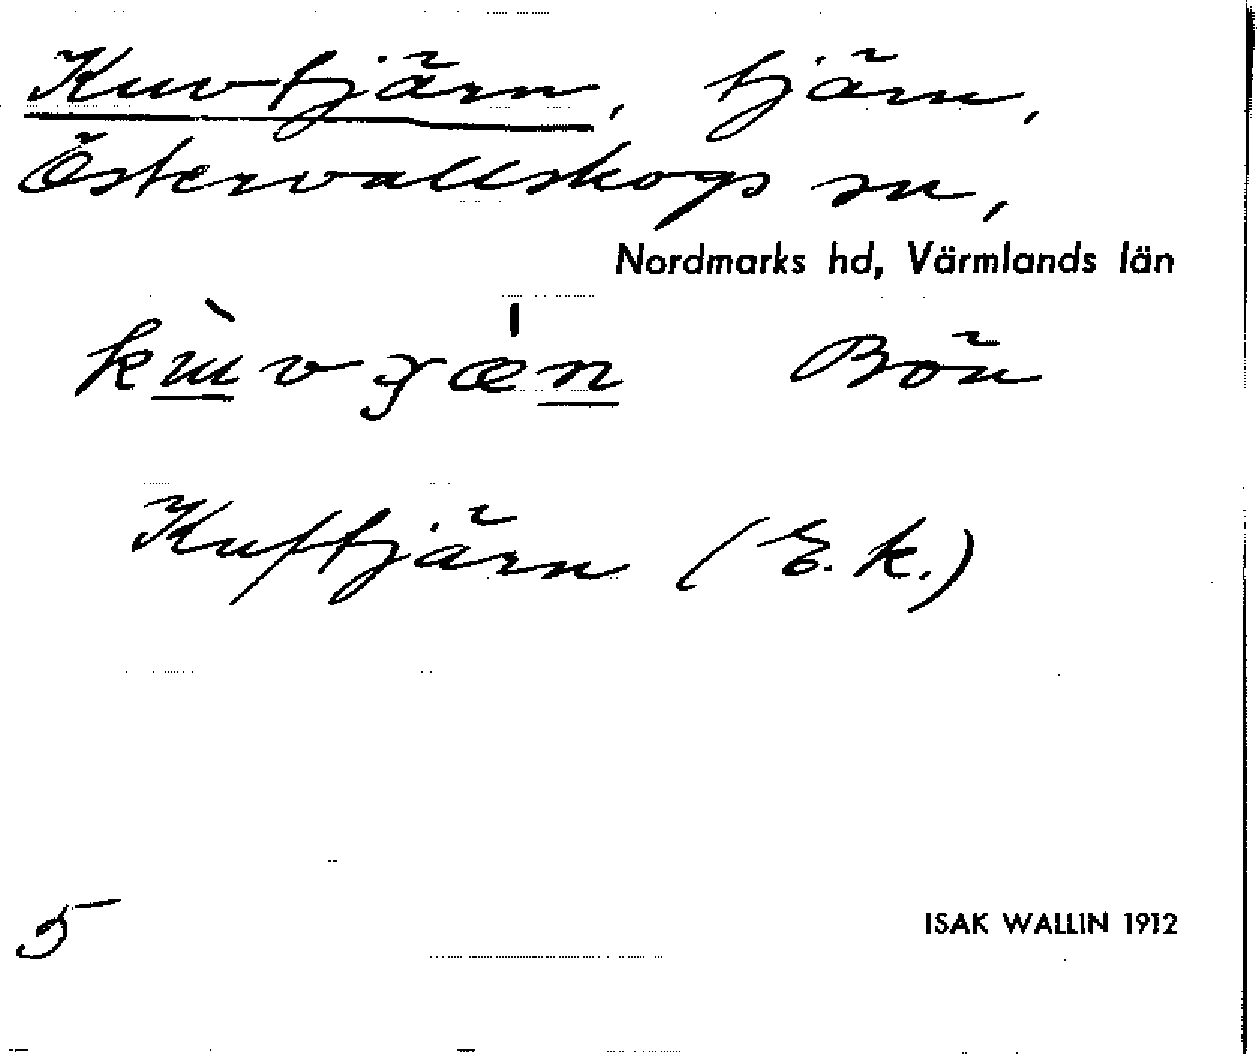 Kuvtjärn, tjärn,
Östervallskogs sn,
Nordmarks hd, Värmlands län
Bön
Kuftjärn (E.k.)
5
ISAK WALLIN 1912